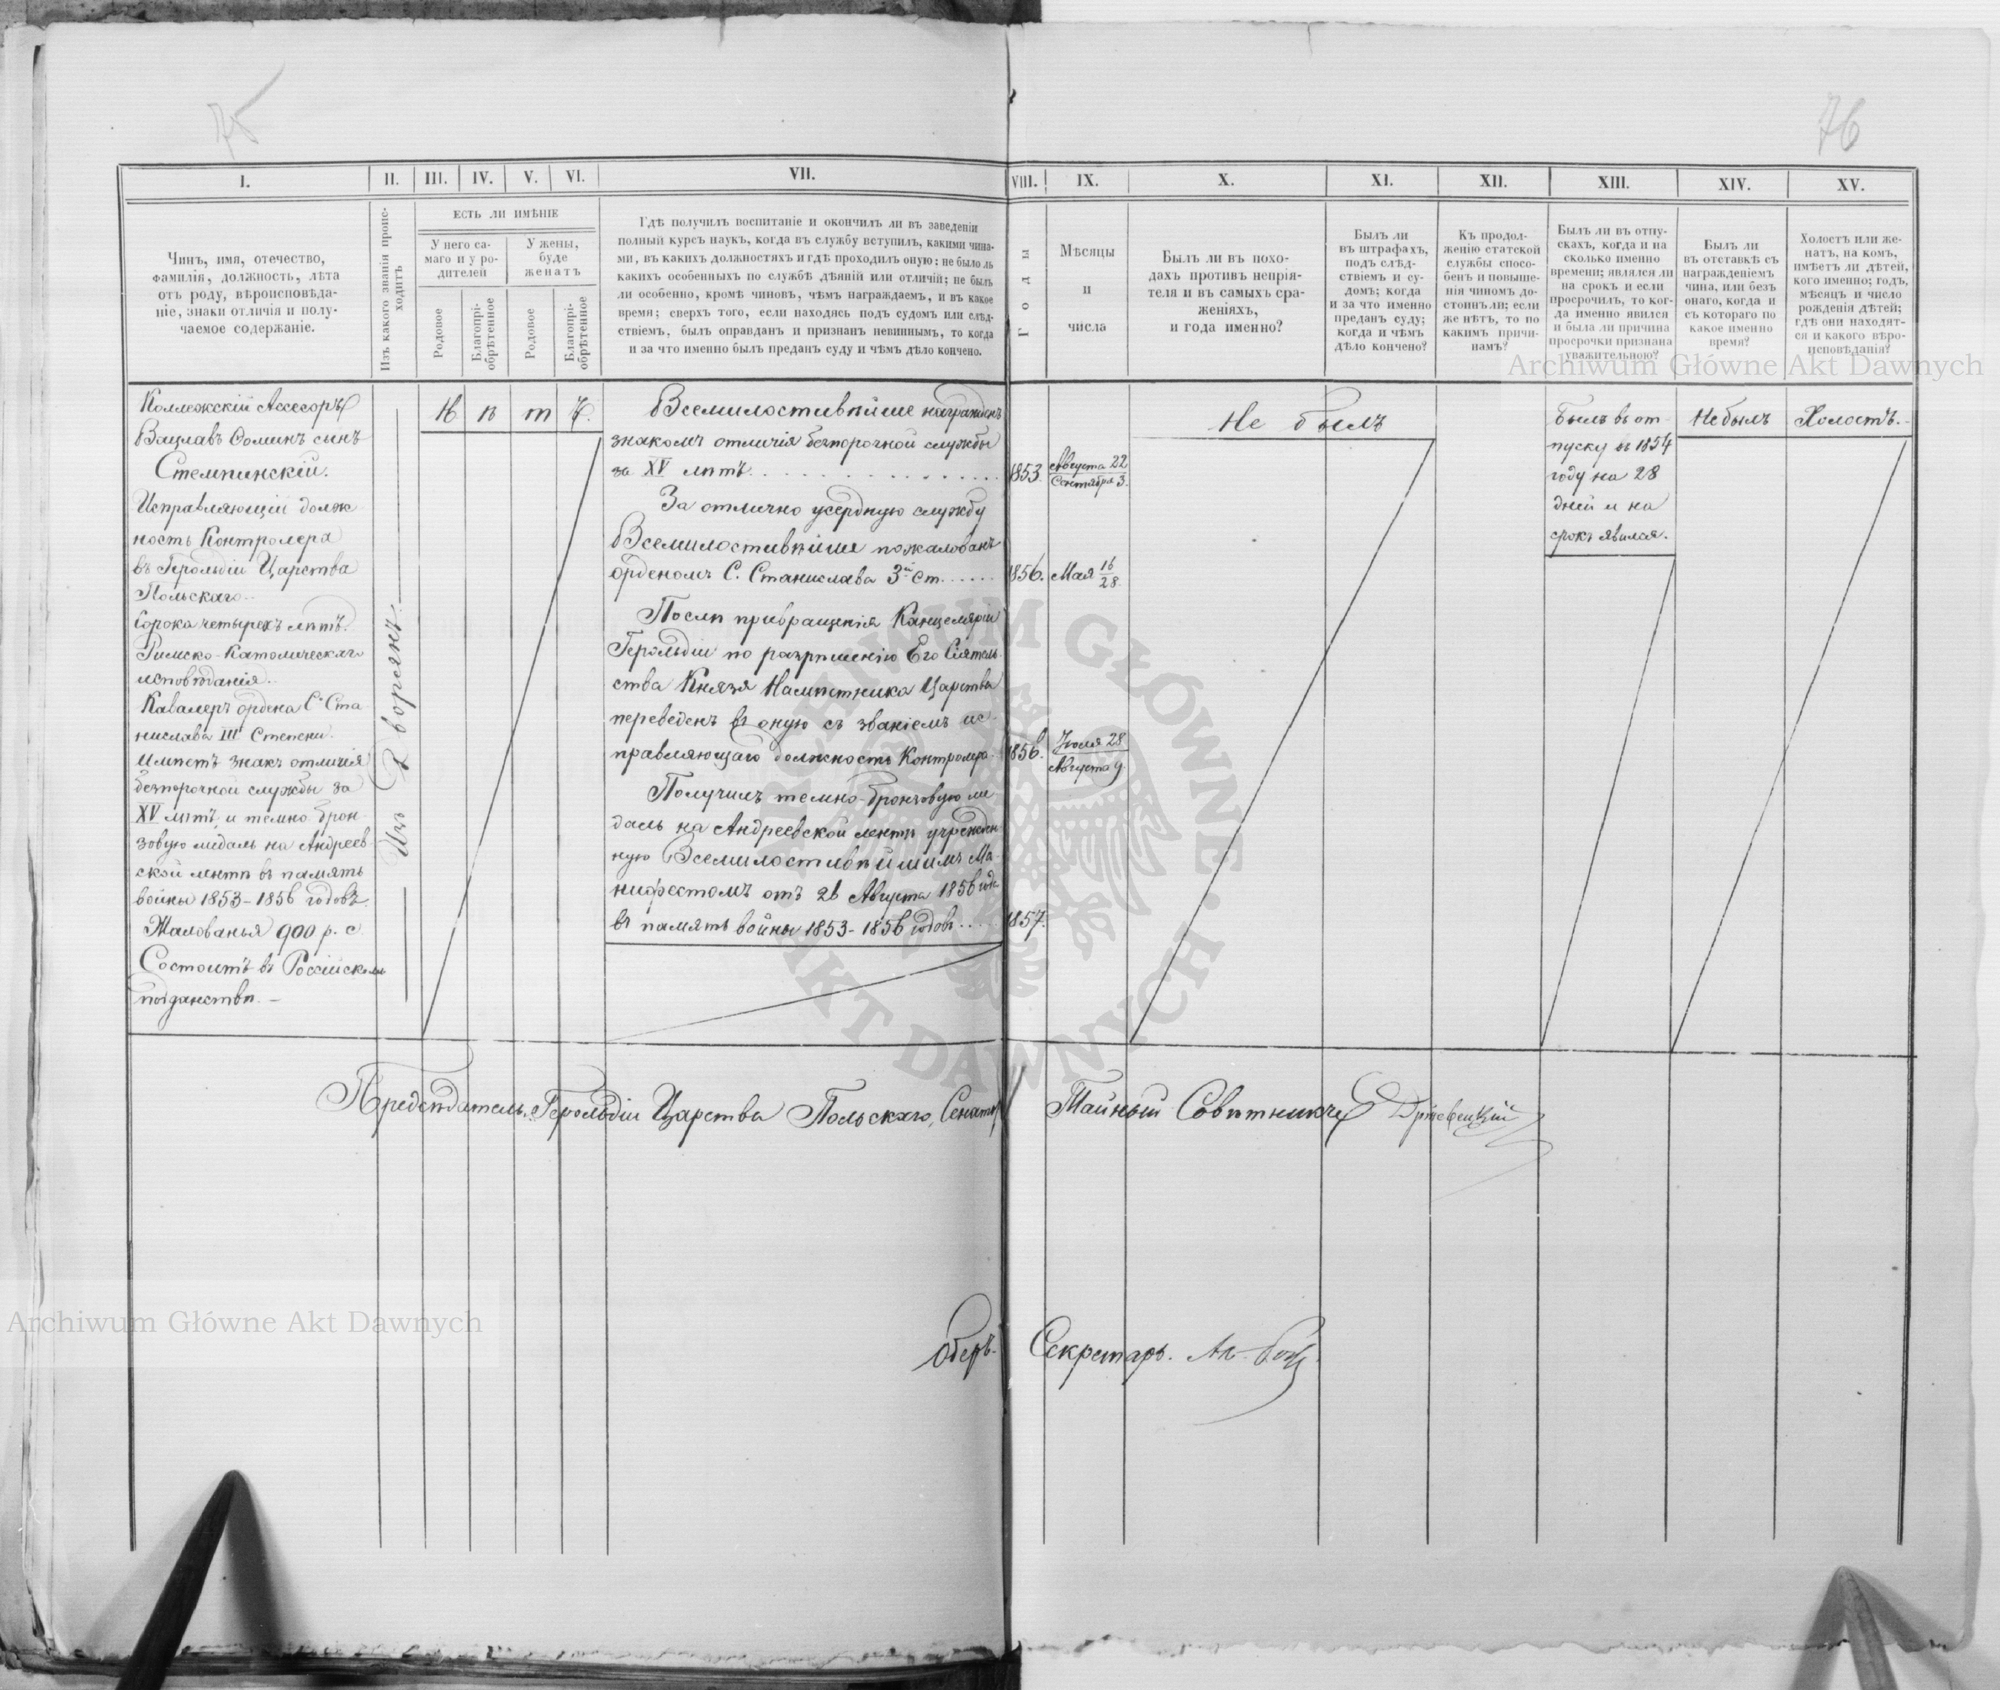 75
76
I.
II.
III.
IV.
V.
VI.
VII.
VIII.
IX.
X.
XI.
XII.
XIII.
XIV.
XV.
Чинъ, имя, отечество,
фамилія, должность, лѣта
отъ роду, вѣроисповѣда-
ніе, знаки отличія и полу-
чаемое содержаніе.
Изъ какого званія проис-
ходитъ
ЕСТЬ ЛИ ИМѢНІЕ
У него са-
маго и у ро-
дителей
У жены,
буде
женатъ
Родовое
Благопрі-
обрѣтенное
Родовое
Благопрі-
обрѣтенное
Гдѣ получилъ воспитаніе и окончилъ ли въ заведеніи
полный курсъ наукъ, когда въ службу вступилъ, какими чина-
ми, въ какихъ должностяхъ и гдѣ проходилъ оную; не было ль
какихъ особенныхъ по службѣ дѣяній или отличій; не былъ
ли особенно, кромѣ чиновъ, чѣмъ награждаемъ, и въ какое
время; сверхъ того, если находясь подъ судомъ или слѣд-
ствіемъ, былъ оправданъ и признанъ невиннымъ, то когда
и за что именно былъ преданъ суду и чѣмъ дѣло кончено.
Годы
Мѣсяцы
и
числа
Былъ ли въ похо-
дахъ противъ непрія-
теля и въ самыхъ сра-
женіяхъ,
и года именно?
Былъ ли
въ штрафахъ,
подъ слѣд-
ствіемъ и су-
домъ; когда
и за что именно
преданъ суду;
когда и чѣмъ
дѣло кончено?
Къ продол-
женію статской
службы спосо-
бенъ и повыше-
нія чиномъ до-
стоинъ ли; если
же нѣтъ, то по
какимъ причи-
намъ?
Былъ ли въ отпу-
скахъ, когда и на
сколько именно
времени; являлся ли
на срокъ и если
просрочилъ, то ког-
да именно явился
и была ли причина
просрочки признана
уважительною?
Былъ ли
въ отставкѣ съ
награжденіемъ
чина, или безъ
онаго, когда и
съ котораго по
какое именно
время?
Холостъ или же-
натъ, на комъ,
имѣетъ ли дѣтей,
кого именно; годъ,
мѣсяцъ и число
рожденія дѣтей;
гдѣ они находят-
ся и какого вѣро-
исповѣданія?
Archiwum Główne Akt Dawnych
Коллежскій Ассесоръ
Вацлавъ Ѳоминъ сынъ
Стемпинскій.
Исправляющій долж-
ность Контролера
въ Герольдіи Царства
Польскаго.
Сорока четырехъ лѣтъ.
Римско-Католическаго
исповѣданія.
Кавалеръ ордена Св. Ста-
нислава III Степени.
Имѣетъ знакъ отличія
безпорочной службы за
XV лѣтъ и темно-брон-
зовую медаль на Андреев-
ской лентѣ въ память
войны 1853-1856 годовъ.
Жалованья 900 р. с.
Состоитъ въ Россійскомъ
подданствѣ. -
Изъ Дворянъ.
Н ѣ т ъ.
Всемилостивѣйше награжденъ
знакомъ отличія безпорочной службы
за XV лѣтъ
1853.
Августа 22
Сентября 3.
За отлично усердную службу
Всемилостивѣйше пожалованъ
орденомъ С. Станислава 3й Ст.
1856.
Мая 16/28
Послѣ превращенія Канцеляріи
Герольдіи по разрѣшенію Его Сіятель-
ства Князя Намѣстника Царства
переведенъ въ оную съ званіемъ ис-
правляющаго должность Контролера.
1856.
Іюля 28
Августа 9.
Получилъ темно-бронзовую ме-
даль на Андреевской лентѣ учрежден-
ную Всемилостивѣйшимъ Ма-
нифестомъ отъ 26 Августа 1856 года
въ память войны 1853-1856 годовъ
1857.
Не былъ
Былъ въ от-
пуску въ 1854
году на 28
дней и на
срокъ явился.
Не былъ
Холостъ.
Предсѣдатель Герольдіи Царства Польскаго, Сенаторъ Тайный Совѣтникъ
Оберъ-Секретарь.
ARCHIWUM GŁÓWNE AKT DAWNYCH
Archiwum Główne Akt Dawnych